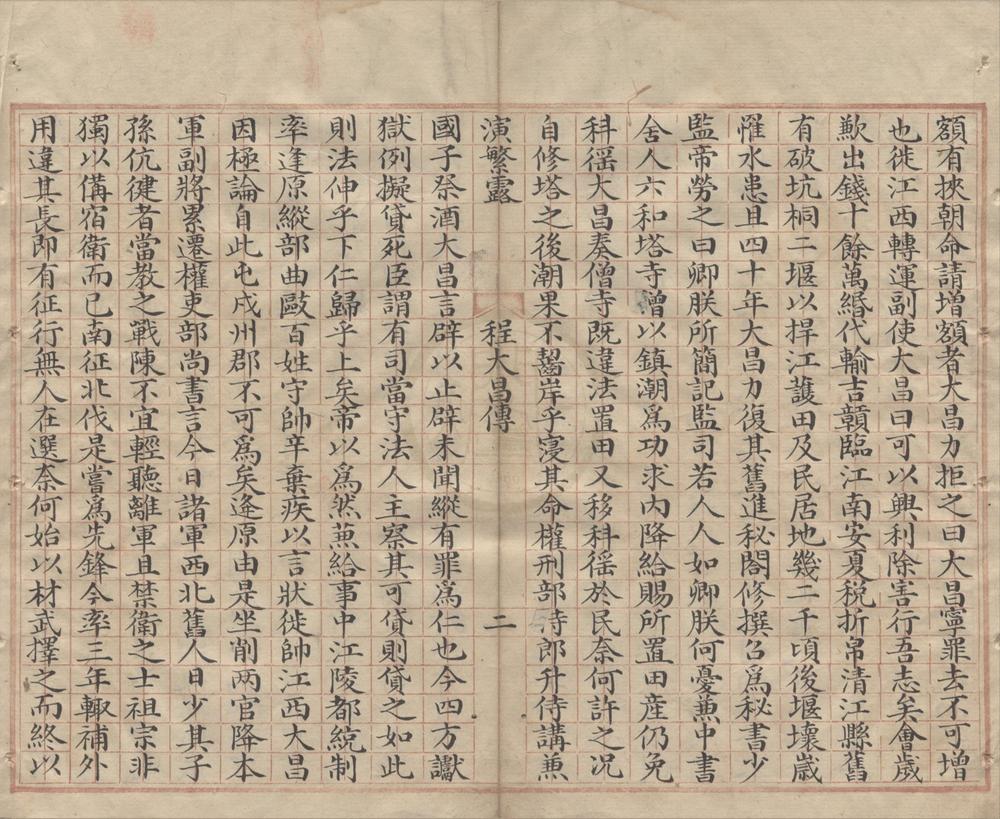 額有挾朝命請增額者大昌力拒之曰大昌寧罪去不可增
也徙江西轉運副使大昌曰可以興利除害行吾志矣會歲
歉出錢十餘萬緡代輸吉贛臨江南安夏稅折帛清江縣舊
有破坑桐二堰以捍江護田及民居地幾二千頃後堰壞歲
罹水患且四十年大昌力復其舊進秘閣修撰召爲秘書少
監帝勞之曰卿朕所簡記監司若人人如卿朕何憂兼中書
舍人六和塔寺僧以鎮潮爲功求內降給賜所置田産仍免
科徭大昌奏僧寺既違法置田又移科徭於民奈何許之況
自修塔之後潮果不齧岸乎寑其命權刑部侍郎升侍講兼
演繁露 程大昌傳 二
國子祭酒大昌言辟以止辟未聞縱有罪爲仁也今四方讞
獄例擬貸死臣謂有司當守法人主察其可貸則貸之如此
則法伸乎下仁歸乎上矣帝以爲然兼給事中江陵都統制
率逢原縱部曲毆百姓守帥辛棄疾以言狀徙帥江西大昌
因極論自此屯戍州郡不可爲矣逄原由是坐削兩官降本
軍副將累遷權吏部尚書言今日諸軍西北舊人日少其子
孫伉健者當教之戰陳不宜輕聽離軍且禁衛之士祖宗非
獨以備宿衛而已南征北伐是嘗爲先鋒今率三年輙補外
用違其長即有征行無人在選奈何始以材武擇之而終以